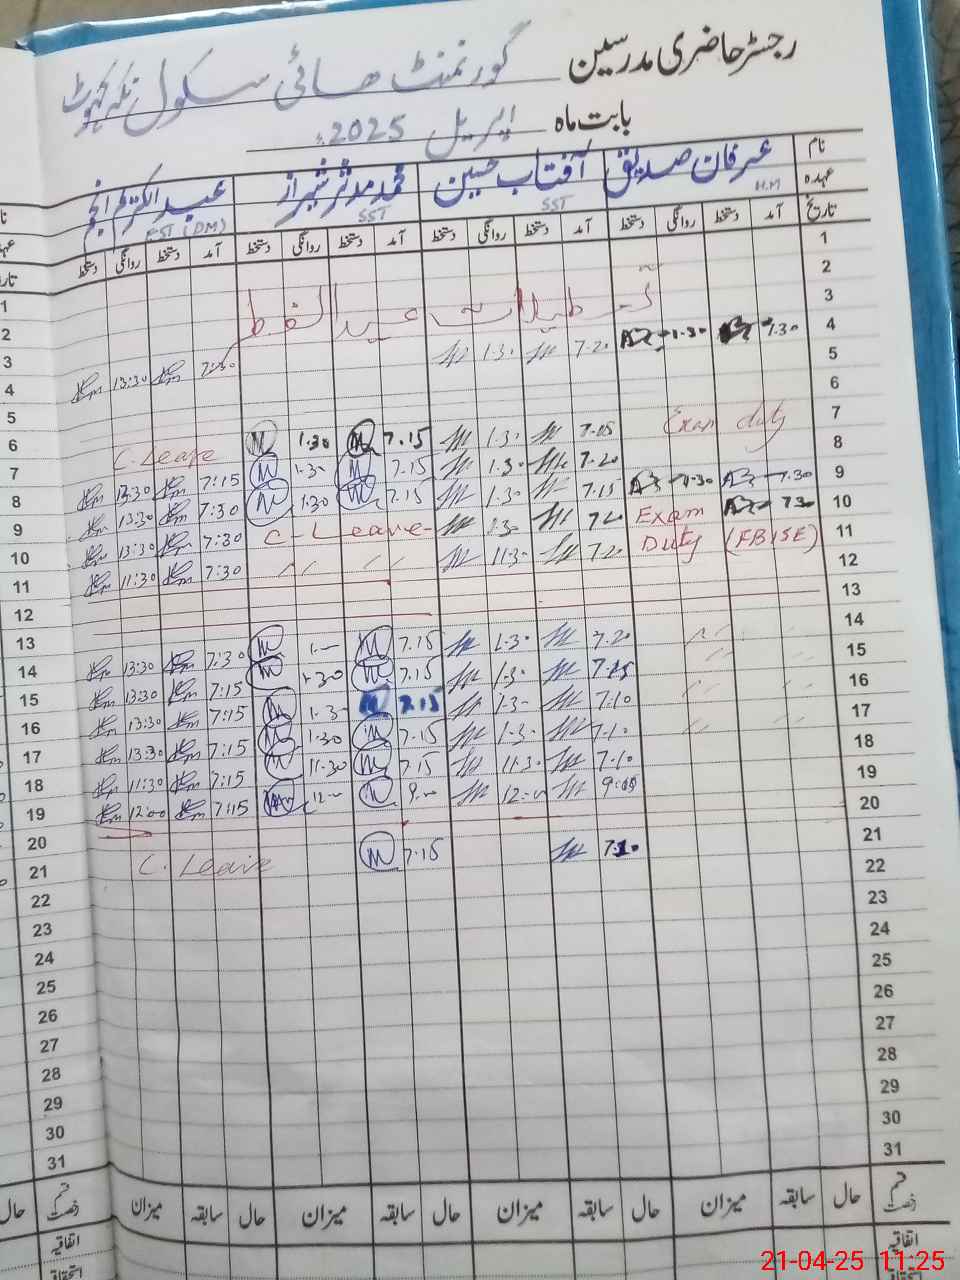 رجسٹر حاضری مدرسین گورنمنٹ ھائی سکول نکہ کہوٹ
بابت ماہ اپریل 2025ء
نام عرفان صدیق آفتاب حسین محمد مدثر شیراز
عہدہ H.M SST SST EST (DM)
تاریخ آمد دستخط روانگی دستخط آمد دستخط روانگی دستخط آمد دستخط روانگی دستخط آمد دستخط روانگی دستخط
1
2
3 تعطیلات عید الفطر
4 7.30 1.30 7.20 1.30 7:30 13:30
5
6
7 Exam duty 7.15 1.30 7.15 1.30 C. Leave
8 7.20 1.30 7.15 1.30 7:15 13:30
9 7.30 1.30 7.15 1.30 7.15 1.30 7:30 13:30
10 7.30 Exam 7.20 1.30 C-Leave 7:30 13:30
11 Duty (FBISE) 7.20 11.30 〃 〃 7:30 11:30
12
13
14 〃 〃 7.20 1.30 7.15 7:30 13:30
15 〃 〃 7.15 1.30 7.15 1.30 7:15 13:30
16 〃 〃 7.10 1.30 7.15 1.30 7:15 13:30
17 〃 〃 7.10 1.30 7.15 1.30 7:15 13:30
18 7.10 11.30 7.15 11.30 7:15 11:30
19 9:00 12-00 9-00 12-00 7:15 12:00
20
21 7.10 7.15 C. Leave
22
23
24
25
26
27
28
29
30
31
قسم رخصت حال سابقہ میزان حال سابقہ میزان حال سابقہ میزان حال سابقہ میزان
اتفاقیہ
21-04-25 11:25